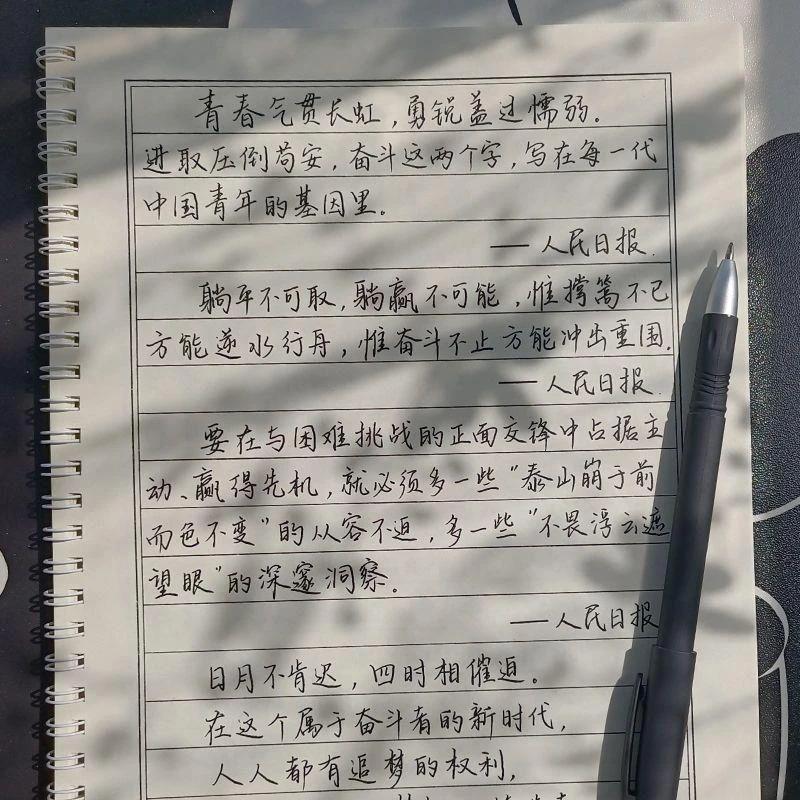 青春气贯长虹，勇锐盖过懦弱。
进取压倒苟安，奋斗这两个字，写在每一代
中国青年的基因里。
—— 人民日报
躺平不可取，躺赢不可能，惟撑篙不已
方能逆水行舟，惟奋斗不止方能冲出重围.
—— 人民日报
要在与困难挑战的正面交锋中占据主
动、赢得先机，就必须多一些“泰山崩于前
而色不变”的从容不迫，多一些“不畏浮云遮
望眼”的深邃洞察。
—— 人民日报
日月不肯迟，四时相催迫。
在这个属于奋斗者的新时代，
人人都有追梦的权利，